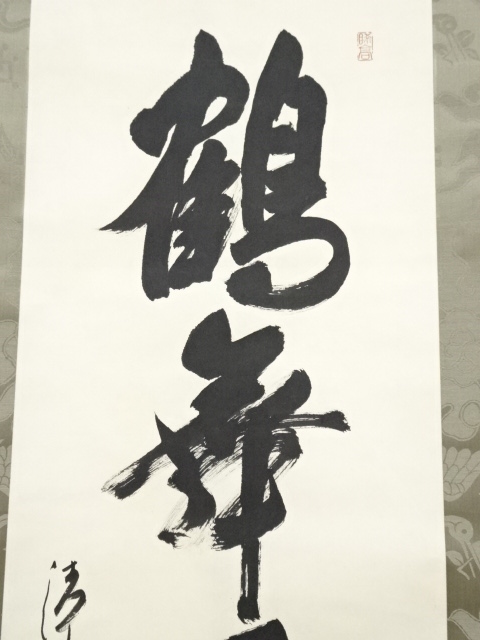 鶴舞
清